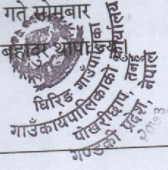 गते सोमबार
बहादुर थापाङ्को
घिरिङ गाउँपालिका
गाउँकार्यपालिकाको कार्यालय
पोखरीछाप, तनहुँ
गण्डकी प्रदेश, नेपाल
२०७३